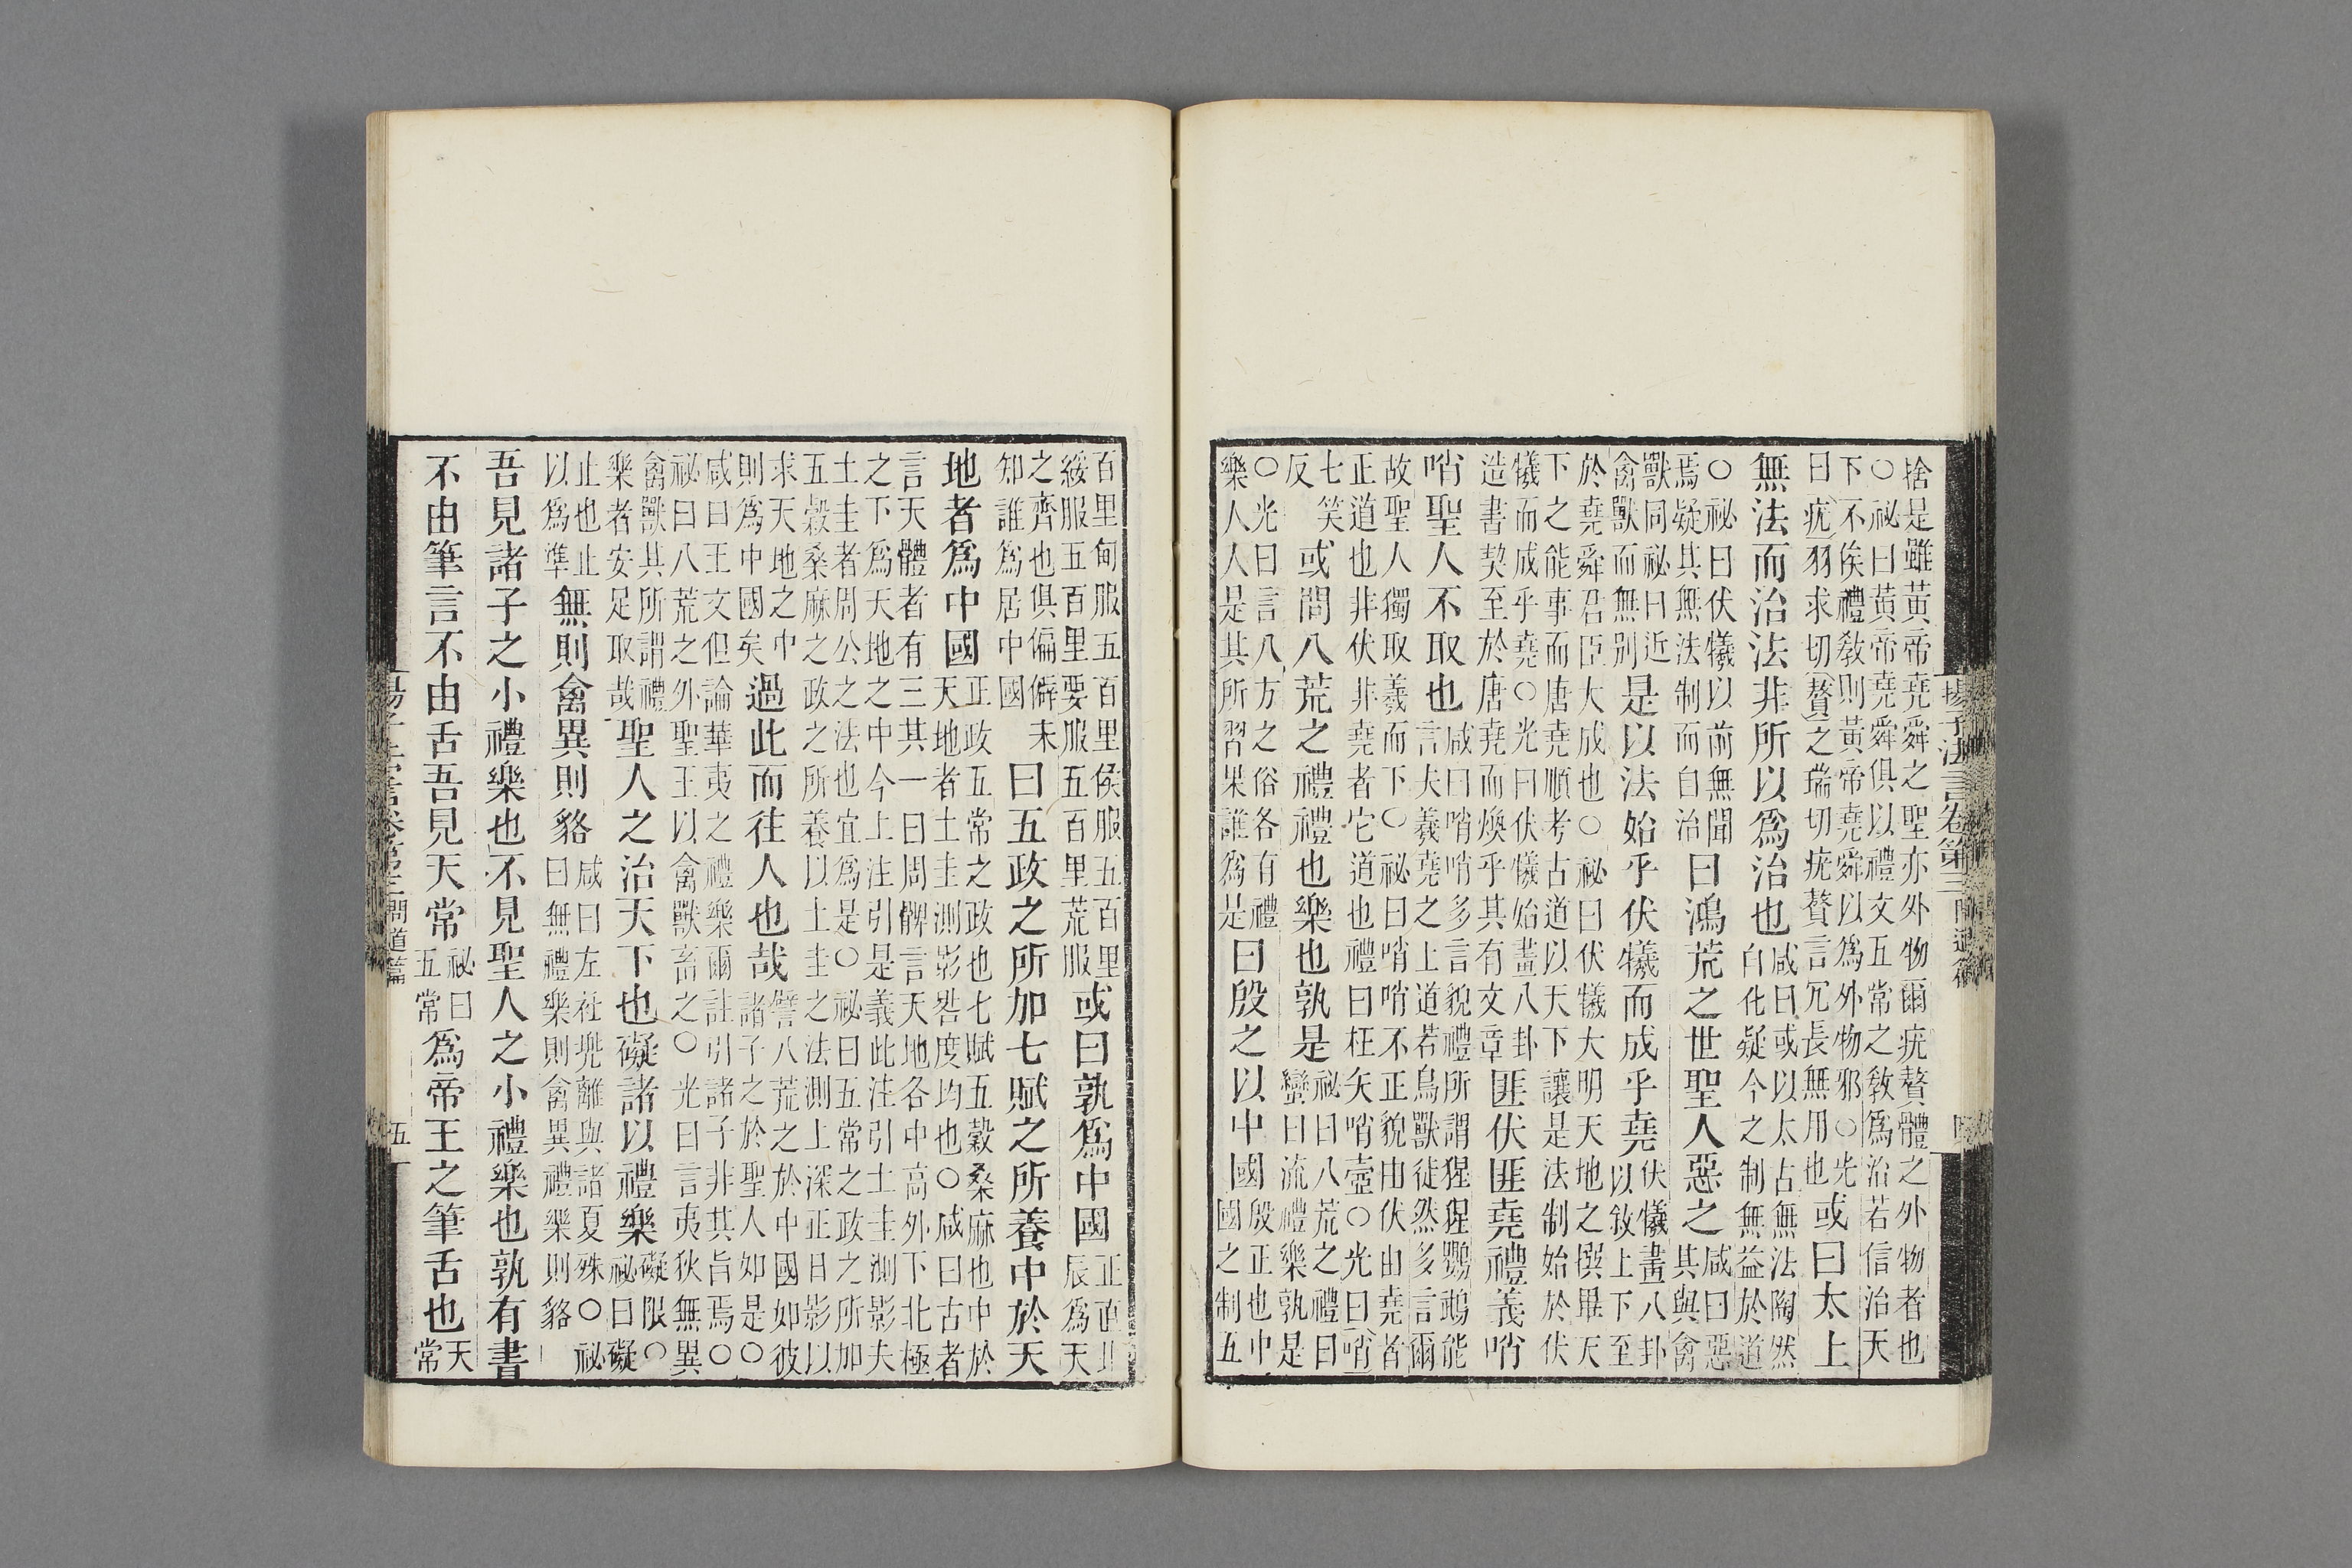 揚子法言卷第三 問道篇
捨是雖黃帝堯舜之聖亦外物爾疣贅體之外物者也
○祕曰黃帝堯舜俱以禮文五常之敎爲治若信治天
下不俟禮敎則黃帝堯舜以爲外物邪○光
曰疣羽求切贅之瑞切疣贅言冗長無用也
或曰太上
無法而治法非所以爲治也
咸曰或以太古無法陶然
自化疑今之制無益於道
○祕曰伏犧以前無聞
焉疑其無法制而自治
曰鴻荒之世聖人惡之
咸曰惡
其與禽
獸同祕曰近
禽獸而無別
是以法始乎伏犧而成乎堯
伏犧畫八卦
以敘上下至
於堯舜君臣大成也○祕曰伏犧大明天地之撰畢天
下之能事而唐堯順考古道以天下讓是法制始於伏
犧而成乎堯○光曰伏犧始畫八卦
造書契至於唐堯而煥乎其有文章
匪伏匪堯禮義哨
哨聖人不取也
咸曰哨哨多言貌禮所謂猩猩鸚鵡能
言夫羲堯之上道若鳥獸徒然多言爾
故聖人獨取羲而下○祕曰哨哨不正貌由伏由堯者
正道也非伏非堯者它道也禮曰枉矢哨壺○光曰哨
七笑
反
或問八荒之禮禮也樂也孰是
祕曰八荒之禮曰
蠻曰流禮樂孰是
○光曰言八方之俗各有禮
樂人人是其所習果誰爲是
曰殷之以中國
殷正也中
國之制五
百里甸服五百里侯服五百里
綏服五百里要服五百里荒服
或曰孰爲中國
正直北
辰爲天
之齊也俱偏僻未
知誰爲居中國
曰五政之所加七賦之所養中於天
地者爲中國
正政五常之政也七賦五穀桑麻也中於
天地者土圭測影晷度均也○咸曰古者
言天體者有三其一曰周髀言天地各中高外下北極
之下爲天地之中今上注引是義此注引土圭測影夫
土圭者周公之法也宜爲是○祕曰五常之政之所加
五穀桑麻之政之所養以土圭之法測上深正日影以
求天地之中
則爲中國矣
過此而往人也哉
譬八荒之於中國如彼
諸子之於聖人如是○
咸曰王文但論華夷之禮樂爾註引諸子非其旨焉○
祕曰八荒之外聖王以禽獸畜之○光曰言夷狄無異
禽獸其所謂禮
樂者安足取哉
聖人之治天下也礙諸以禮樂
礙限○
祕曰礙
止也止
以爲準
無則禽異則貉
咸曰左衽兜離與諸夏殊○祕
曰無禮樂則禽異禮樂則貉
吾見諸子之小禮樂也不見聖人之小禮樂也孰有書
不由筆言不由舌吾見天常
祕曰
五常
爲帝王之筆舌也
天
常
問道篇
五